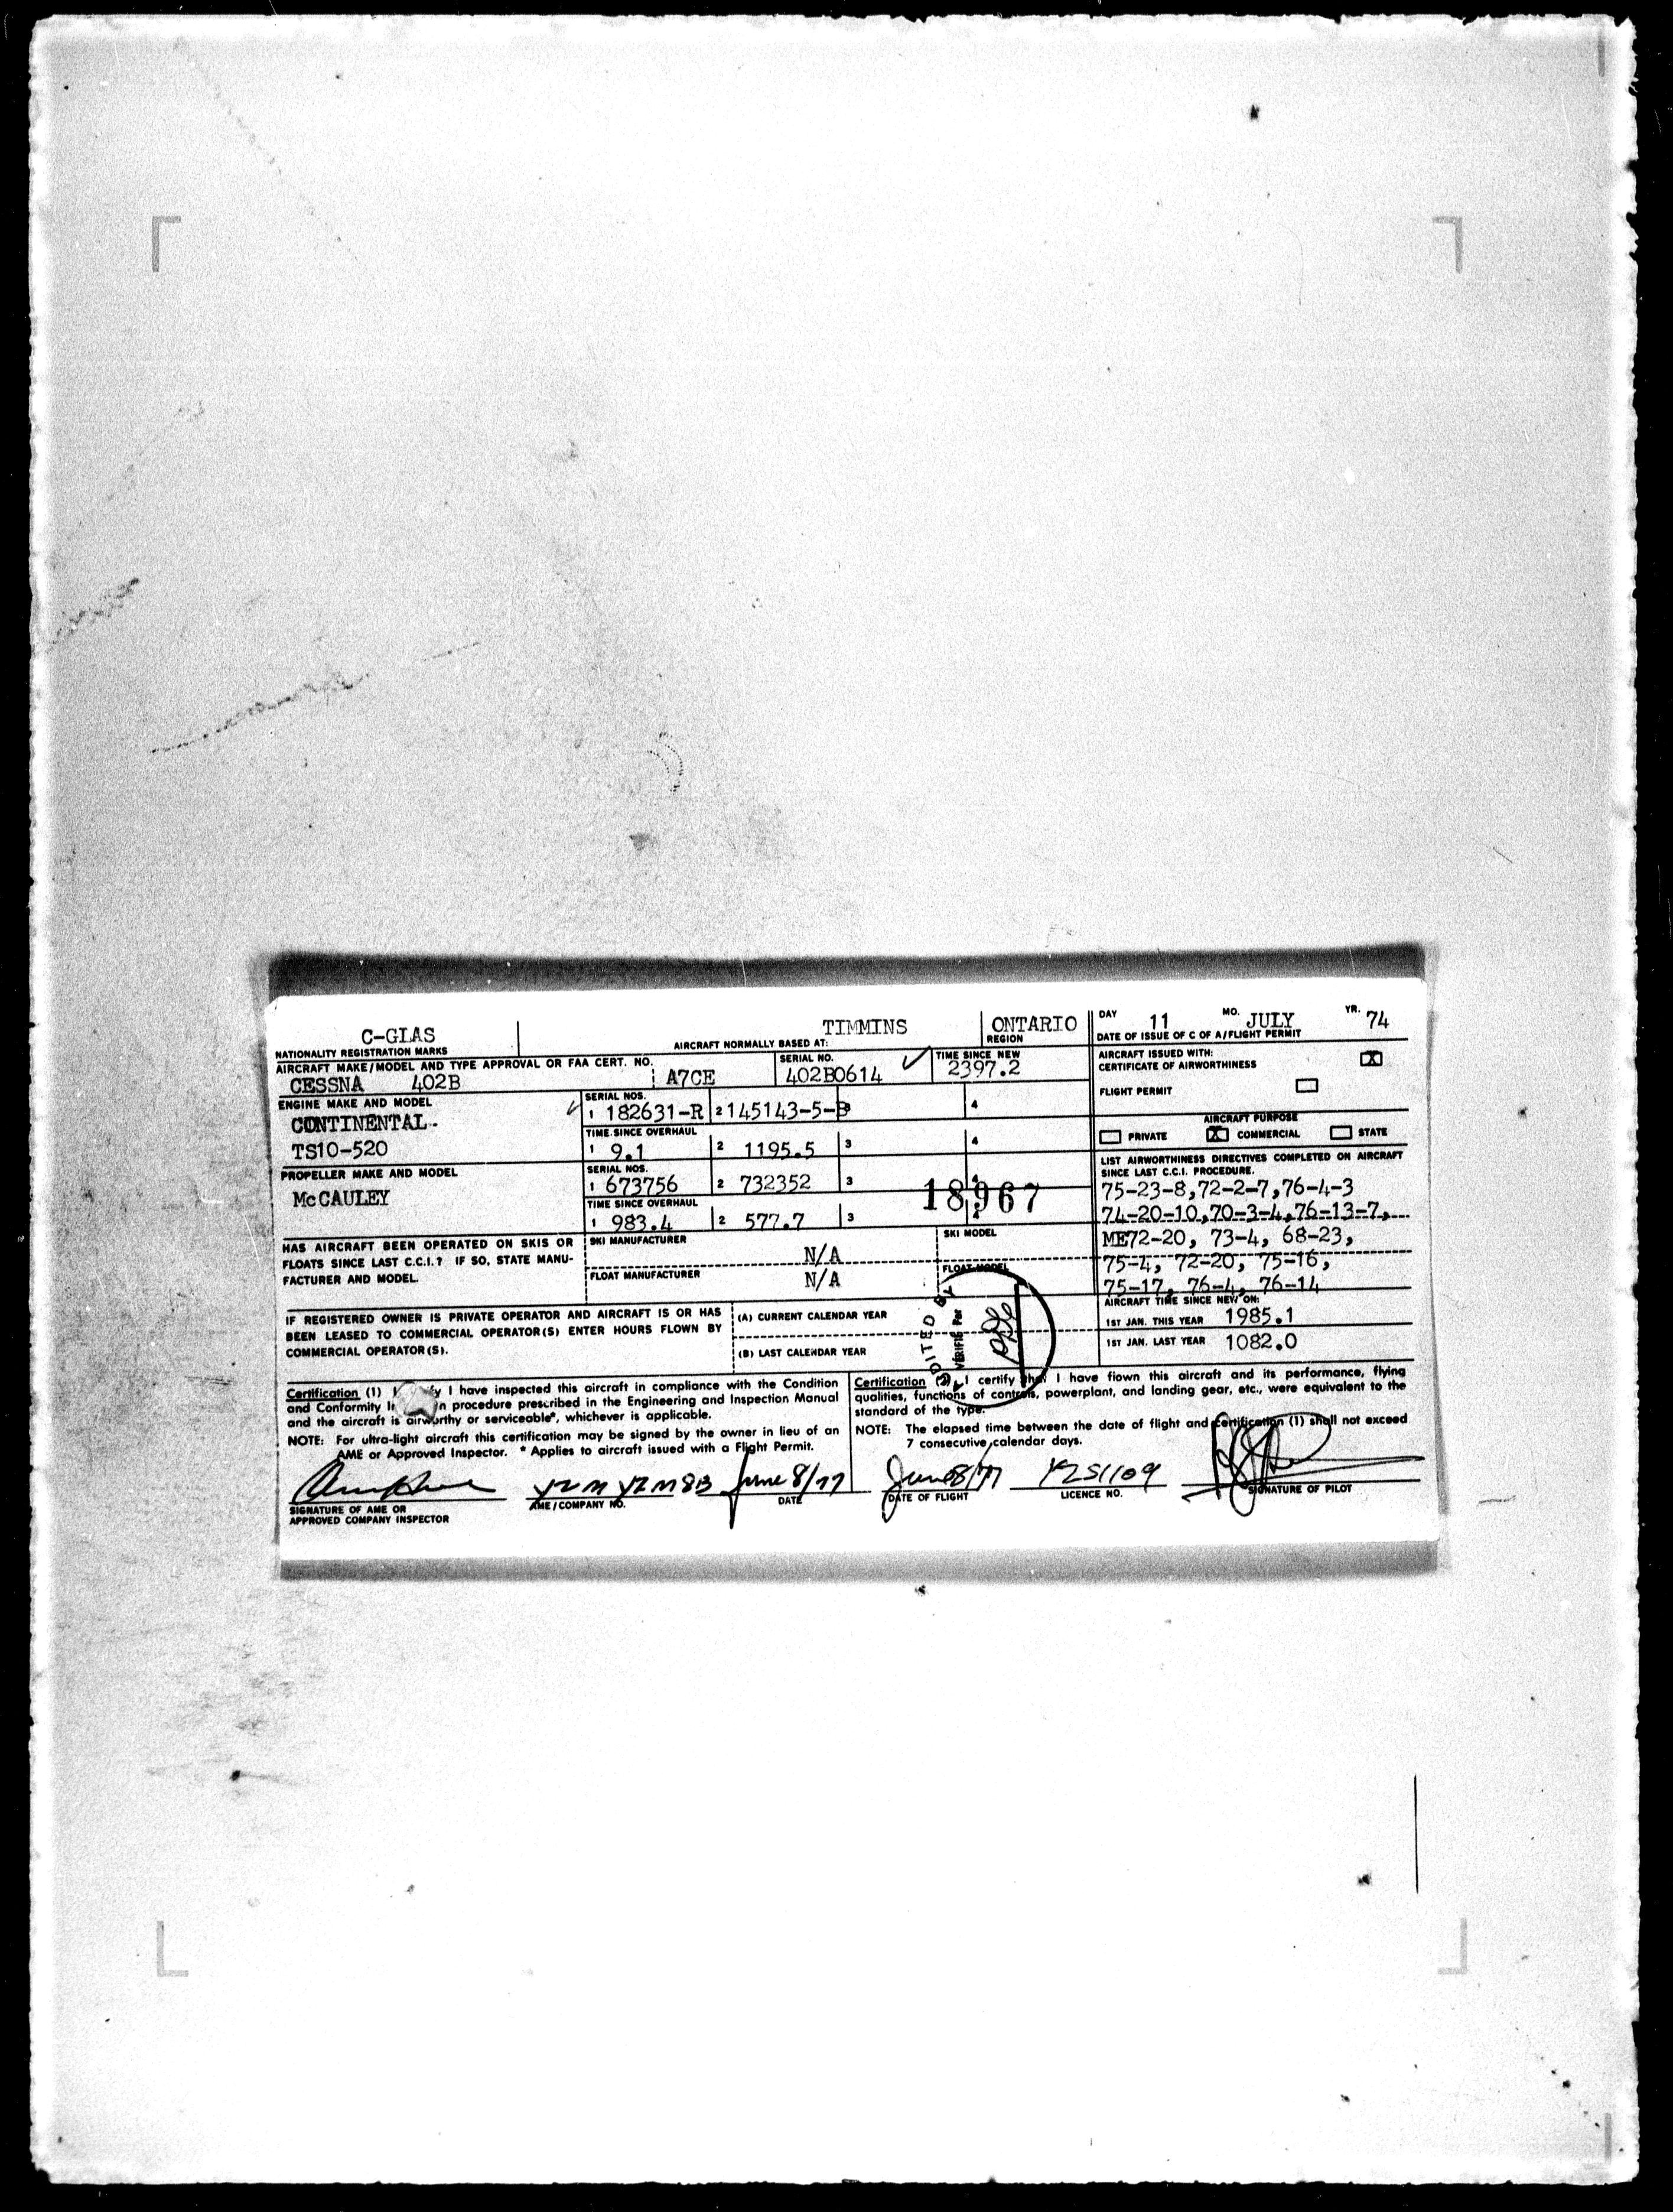 C-GIAS
NATIONALITY REGISTRATION MARKS
TIMMINS
AIRCRAFT NORMALLY BASED AT:
ONTARIO
REGION
DAY 11 MO. JULY YR. 74
DATE OF ISSUE OF C OF A/FLIGHT PERMIT
AIRCRAFT MAKE/MODEL AND TYPE APPROVAL OR FAA CERT. NO.
CESSNA 402B A7CE
SERIAL NO.
402B0614
TIME SINCE NEW
2397.2
AIRCRAFT ISSUED WITH:
CERTIFICATE OF AIRWORTHINESS X
FLIGHT PERMIT
ENGINE MAKE AND MODEL
CONTINENTAL
TS10-520
SERIAL NOS.
1 182631-R 2 145143-5-B 3 4
TIME SINCE OVERHAUL
1 9.1 2 1195.5 3 4
AIRCRAFT PURPOSE
PRIVATE X COMMERCIAL STATE
PROPELLER MAKE AND MODEL
McCAULEY
SERIAL NOS.
1 673756 2 732352 3 4
TIME SINCE OVERHAUL
1 983.4 2 577.7 3 4
18967
LIST AIRWORTHINESS DIRECTIVES COMPLETED ON AIRCRAFT
SINCE LAST C.C.I. PROCEDURE.
75-23-8,72-2-7,76-4-3
74-20-10,70-3-4,76-13-7,
ME72-20, 73-4, 68-23,
75-4, 72-20, 75-16,
75-17, 76-4, 76-14
HAS AIRCRAFT BEEN OPERATED ON SKIS OR
FLOATS SINCE LAST C.C.I.? IF SO, STATE MANU-
FACTURER AND MODEL.
SKI MANUFACTURER
N/A
SKI MODEL
FLOAT MANUFACTURER
N/A
FLOAT MODEL
IF REGISTERED OWNER IS PRIVATE OPERATOR AND AIRCRAFT IS OR HAS
BEEN LEASED TO COMMERCIAL OPERATOR(S) ENTER HOURS FLOWN BY
COMMERCIAL OPERATOR(S).
(A) CURRENT CALENDAR YEAR
(B) LAST CALENDAR YEAR
AUDITED BY
VERIFIÉ Par
AIRCRAFT TIME SINCE NEW ON:
1ST JAN. THIS YEAR 1985.1
1ST JAN. LAST YEAR 1082.0
Certification (1) I y I have inspected this aircraft in compliance with the Condition
and Conformity In n procedure prescribed in the Engineering and Inspection Manual
and the aircraft is airworthy or serviceable*, whichever is applicable.
NOTE: For ultra-light aircraft this certification may be signed by the owner in lieu of an
AME or Approved Inspector. * Applies to aircraft issued with a Flight Permit.
YZM YZM83 June 8/77
SIGNATURE OF AME OR
APPROVED COMPANY INSPECTOR
AME/COMPANY NO.
DATE
Certification (2) I certify that I have flown this aircraft and its performance, flying
qualities, functions of controls, powerplant, and landing gear, etc., were equivalent to the
standard of the type.
NOTE: The elapsed time between the date of flight and certification (1) shall not exceed
7 consecutive calendar days.
June 8/77 YZS1109
DATE OF FLIGHT
LICENCE NO.
SIGNATURE OF PILOT